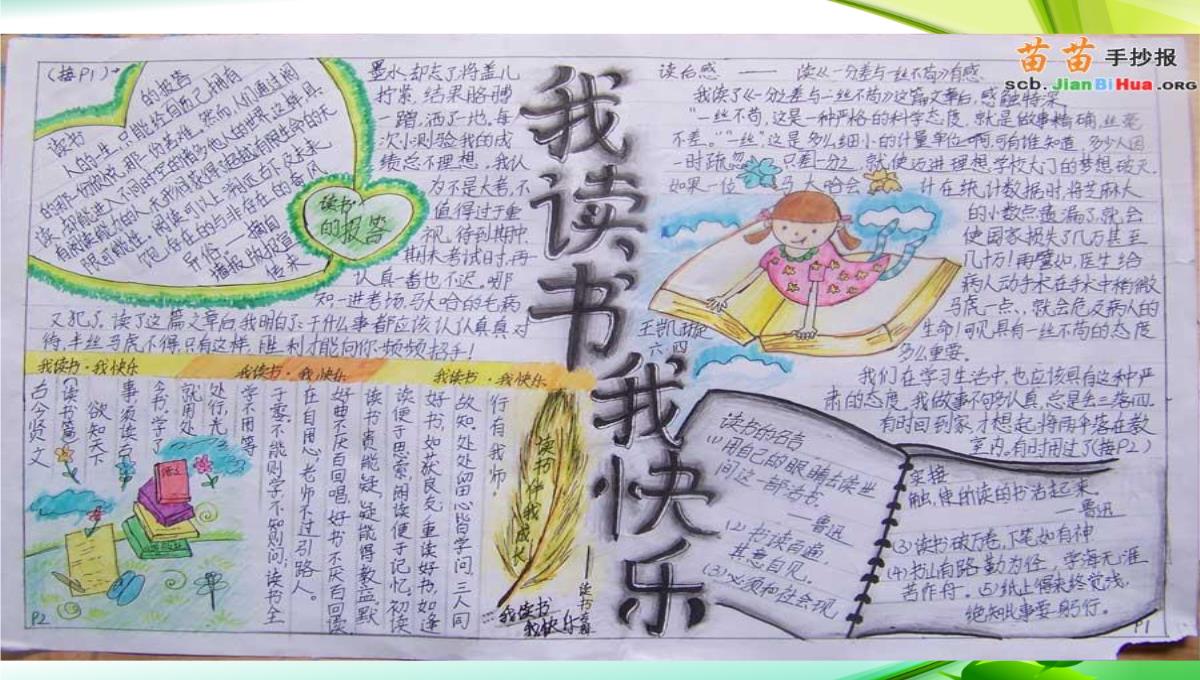 苗苗手抄报
scb.JianBiHua.ORG
我读书
我快乐
读后感 —— 读《一分之差与一丝不苟》有感
我读了《一分之差与一丝不苟》这篇文章后,感触特深。
"一丝不苟,这是一种严格的科学态度,就是做事精确,丝毫
不差。""一丝"这是多么细小的计量单位啊,可有谁知道,多少人因
一时疏忽,只差一分之,就使迈进理想学校大门的梦想破灭。
如果一位马大哈会计在统计数据时,将芝麻大
的小数点遗漏了,就会
使国家损失了几万甚至
几十万!再譬如,医生给
病人动手术在手术中稍微
马虎一点、就会危及病人的
生命!可见,具有一丝不苟的态度
多么重要。
我们在学习生活中,也应该具有这种严
肃的态度。我做事不够认真,总是丢三落四。
有时回到家才想起,将两伞落在教
室内。有时用过了(接P2)
王凯旋
六·四
读书的名言
(1)用自己的眼睛去读世
间这一部活书。
——鲁迅
(2)书读百遍,
其意自见。
(3)必须和社会现
实接
触,使所读的书活起来。
——鲁迅
(3)读书破万卷,下笔如有神
(4)书山有路勤为径,学海无涯
苦作舟。(5)纸上得来终觉浅,
绝知此事要躬行。
P1
(接P1)→
墨水,却忘了将盖儿
拧紧,结果胳膊
一蹭,洒了一地。每
次小测验我的成
绩总不理想,我认
为不是大考,不
值得过于重
视,待到期中、
期末考试时,再
认真一番也不迟。哪
知一进考场,马大哈的毛病
又犯了。读了这篇文章后,我明白了:干什么事都应该认认真真对
待,半丝马虎不得,只有这样,胜利才能向你频频招手!
的报告
读书
人的一生,只能给自己
读书
的报告
我读书·我快乐
我读书·我快乐
我读书·我快乐
行有我师。
故知。处处留心皆学问,三人同
好书,如获良友;重读好书,如逢
读便于思索,闲读便于记忆。初读
读书贵能疑,疑能得教益。默
好曲不厌百回唱,好书不厌百回读。
在自用心。老师不过引路人。
于耍。不能则学,不知则问;读书全
学不用等
处行,光
就用处
会书,学了
事,须读古
欲知天下
《读书篇》
古今贤文
读书伴我成长
我读书
我快乐
P2